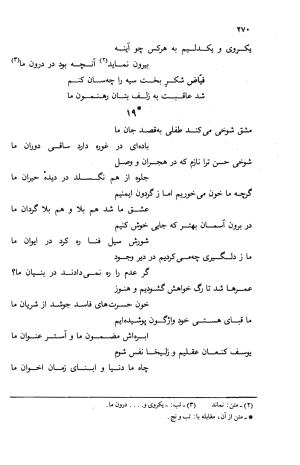 ۲۷۰
یکروی و یکدلیم به هرکس چو آینه
بیرون نماید(۲) آنچه بود در درون ما(۳)
فیّاض شکرِ بخت سیه را چه‌سان کنم
شد عاقبت به زلف بتان رهنمون ما
۱۹*
مشق شوخی می‌کند طفلی به‌قصد جان ما
باده‌ای در غوره دارد ساقی دوران ما
شوخی حسن ترا نازم که در هجران و وصل
جلوه از هم نگسلد در دیدهٔ حیران ما
گرچه ما خون می‌خوریم اما ز گردون ایمنیم
عشق ما شد هم بلا و هم بلا گردان ما
در برون آسمان بهتر که جایی خوش کنیم
شورش سیل فنا ره کرد در ایوان ما
ما ز دلگیری چه‌می‌کردیم در دیر وجود
گر عدم را ره نمی‌دادند در بنیان ما؟
عمرها شد تا رگ خواهش گشودیم و هنوز
خون حسرت‌های فاسد جوشد از شریان ما
ما قبای هستی خود واژگون پوشیده‌ایم
ابره‌اش مضمون ما و آستر عنوان ما
یوسف کنعان عقلیم و زلیخا نفس شوم
چاه ما دنیا و ابنای زمان اخوان ما
(۲) ـ متن: نماند (۳) ـ تب: ـ یکروی و . . . درون ما.
* ـ متن از آن، مقابله با: تب و نج.